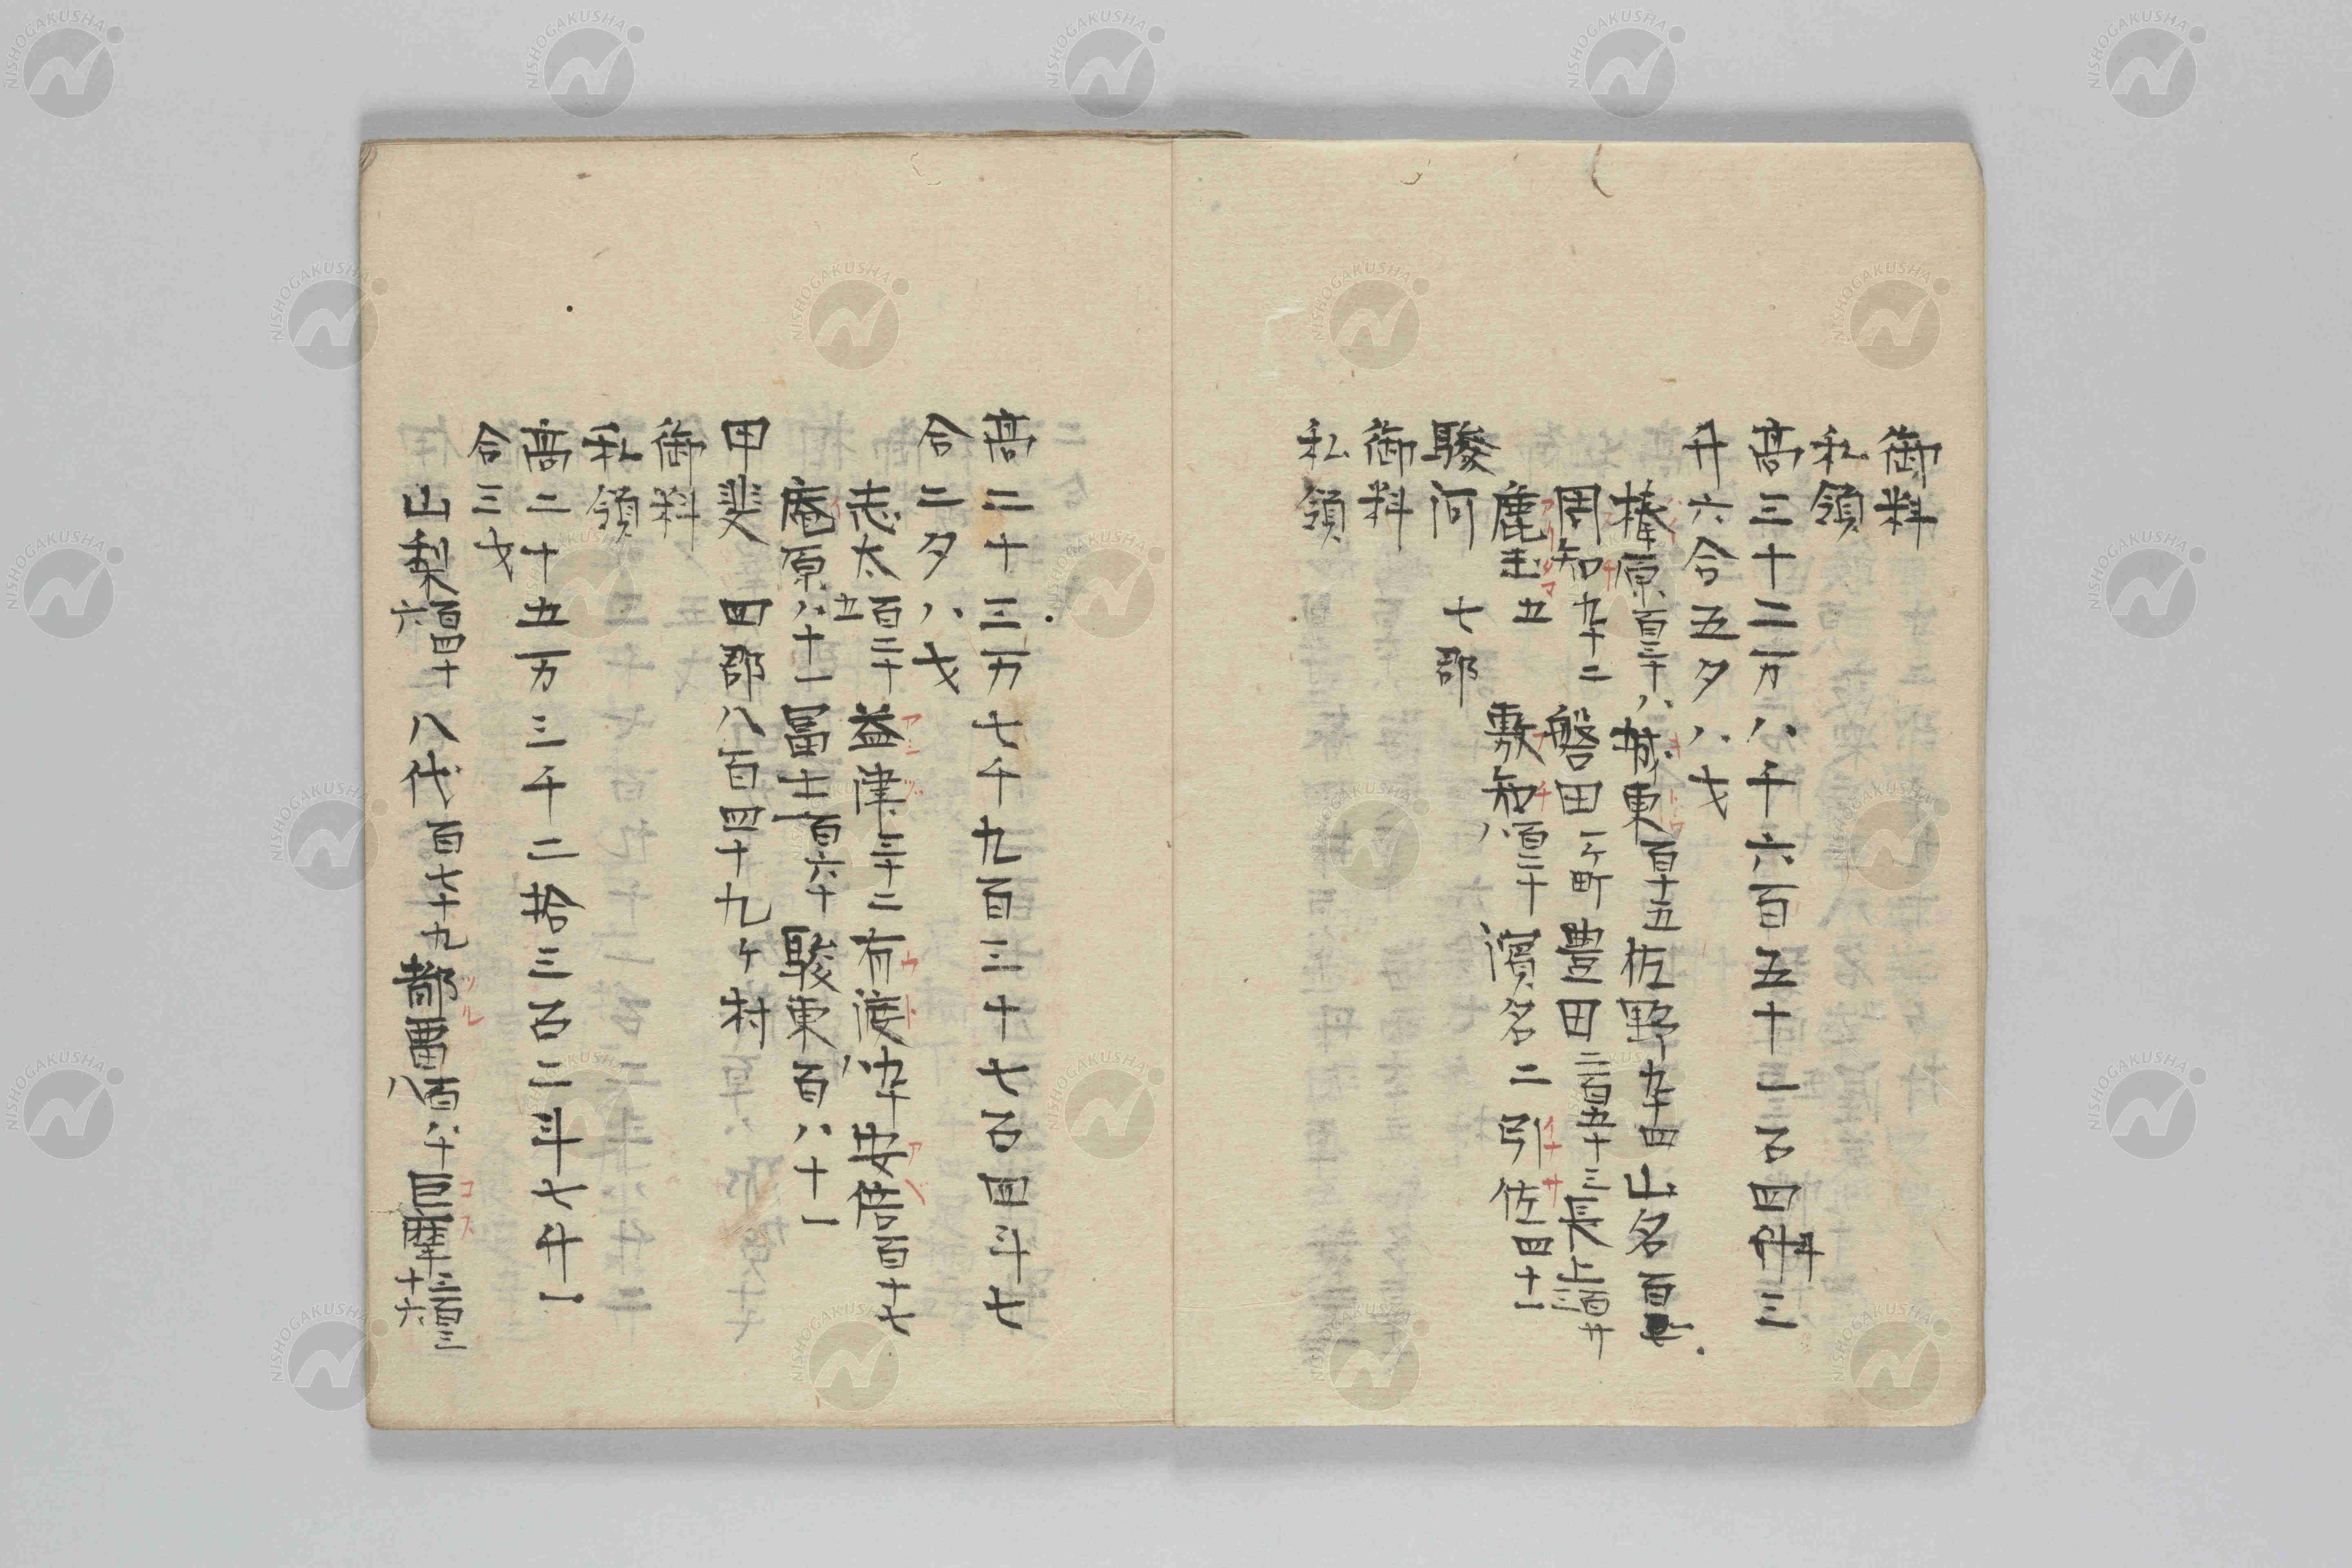 御料
私領
高三十二万八千六百五十一石四斗三
升六合五夕八才
榛原百三十八城東百十五佐野九十四山名百
周知九十二磐田一ケ町豊田三百五十三長上三百廿
麁玉五敷知百二十八濱名二引佐四十一
駿河七郡
御料
私領
高二十三万七千九百三十七石四斗七
合二夕八才
志太百三十五益津三十二有渡九十八安倍百十七
庵原八十一冨士百六十一駿東百八十一
甲斐四郡八百四十九ケ村
御料
私領
高二十五万三千二拾三石二斗七升一
合三才
山梨百四十六八代百七十九都留百八十八巨摩三百三十六
NISHOGAKUSHA